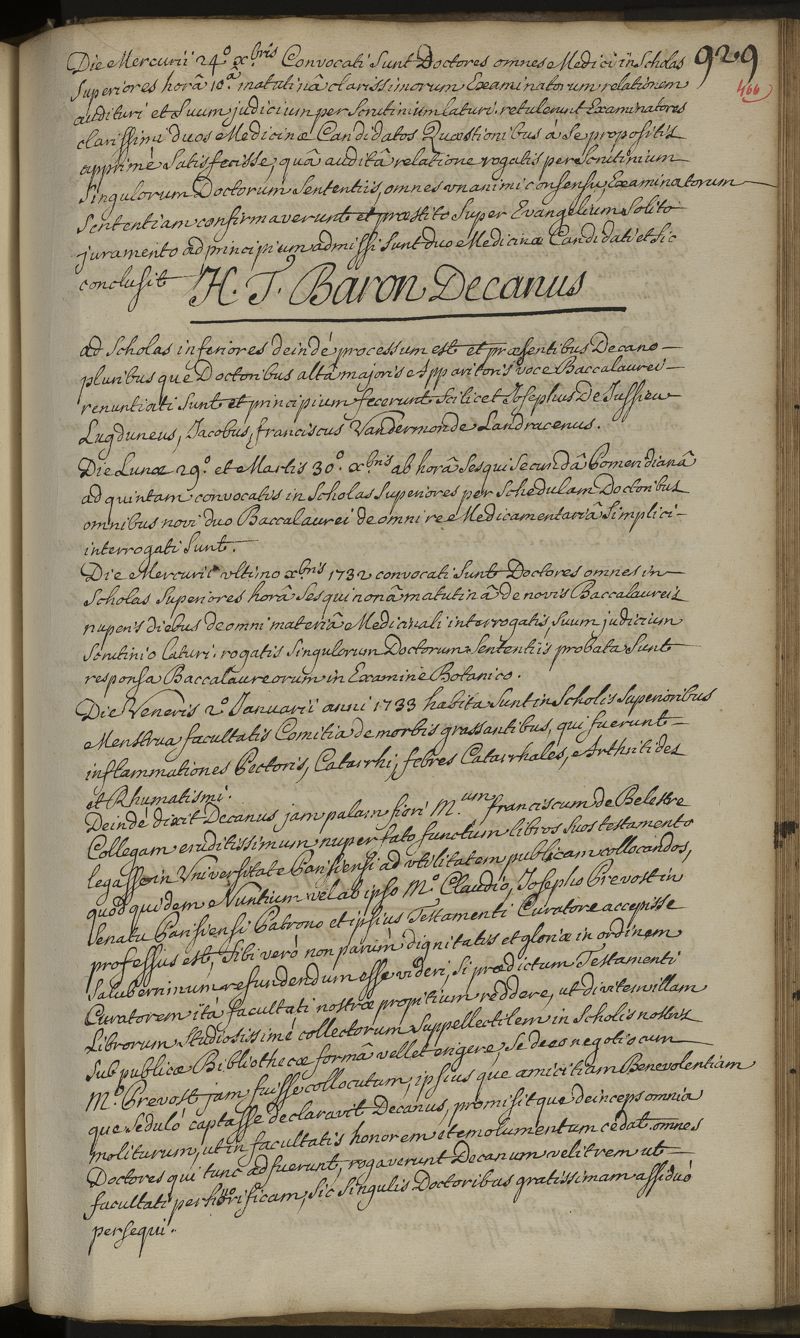 929
466
Die Mercurii 24.° xbris Convocati Sunt Doctores omnes Medici in Scholas
Superiores horâ 10.â matutinâ clarissimorum Examinatorum relationem
audituri et Suum judicium per Scrutinium laturi. retulerunt Examinatores
clarissimi duos Medicinæ Candidatos Quæstionibus à Se propositis
apprimé Satisfecisse, quâ auditâ relatione rogatis per Scrutinium
Singulorum Doctorum Sententiis, omnes unanimi consensu, Examinatorum
Sententiam confirmaverunt et præstito Super Evangelium Solito
juramento ad principium admissi Sunt duo Medicinæ Candidati et Sic
conclusit H. T. Baron Decanus
ad Scholas inferiores deindé processum est et præsentibus Decano
pluribus que Doctoribus altâ majoris Apparitoris voce Baccalaurei
renuntiati Sunt et principium fecerunt Scilicet Josephus De Jussieu
Lugduneus, Jacobus, franciscus Vandermonde Landracenus.
Die Lunæ 29.° et Martis 30.° xbris ab horâ Sesqui Secundâ Pomeridianâ
ad quintam convocatis in Scholas Superiores per Schedulam Doctoribus
omnibus novi duo Baccalaurei de omni re Medicamentariâ Simplici
interrogati Sunt.
Die Mercurii ultino xbris 1732 convocati Sunt Doctores omnes in
Scholas Superiores horâ Sesqui nonâ matutinâ de novis Baccalaureis
nuperis diebus de omni materiâ Medicinali interrogatis Suum judicium
Scrutinio laturi. rogatis Singulorum Doctorum Sententiis probata Sunt
responsa Baccalaureorum in Examine Botanico.
Die Veneris 2.° Januarii anni 1733 habita Sunt in Scholis Superioribus
Menstrua facultatis Comitia de morbis grassantibus, qui fuerunt
inflammationes Pectoris, Catarrhi, febres Catarrhales, Arthritides
et Rhumatismi.
Deindé dixit Decanus jam palam fieri M.um franciscum de Belestre
Collegam eruditissimum nuper fato functum libros Suos testamento
legasse in Universitate Parisiensi ad utilitatem publicam collocandos,
quod quidem Nuntium vel ab ipso M.° Claudio, Josepho Prevost in
Senatu Parisiensi Patrono et ipsius Testamenti Curatore accepisse
professus est, Sibi veró non parùm dignitatis et gloriæ in ordinem
Saluberrimum refundendum esse videri, Si prædictum Testamenti
Curatorem ità facultati nostræ propitium reddere, ut divitem illam
Librorum Studiosissimé collectorum Suppellectilem in Scholis nostris
Sub publicæ Bibliothecæ formâ vellet erigere, Se de eo negotio cum
M.° Prevost jam fuisse collocutum, ipsius que amicitiam Benevolentiam
que Seduló captasse declaravit Decanus, promisitque deinceps omnia
moliturum, ut in facultatis honorem et emolumentum cedat. omnes
Doctores qui tunc adfuerunt, rogaverunt Decanum velit rem ut
facultati perhonorificam, Sic Singulis Doctoribus gratissimam assiduó
persequi.